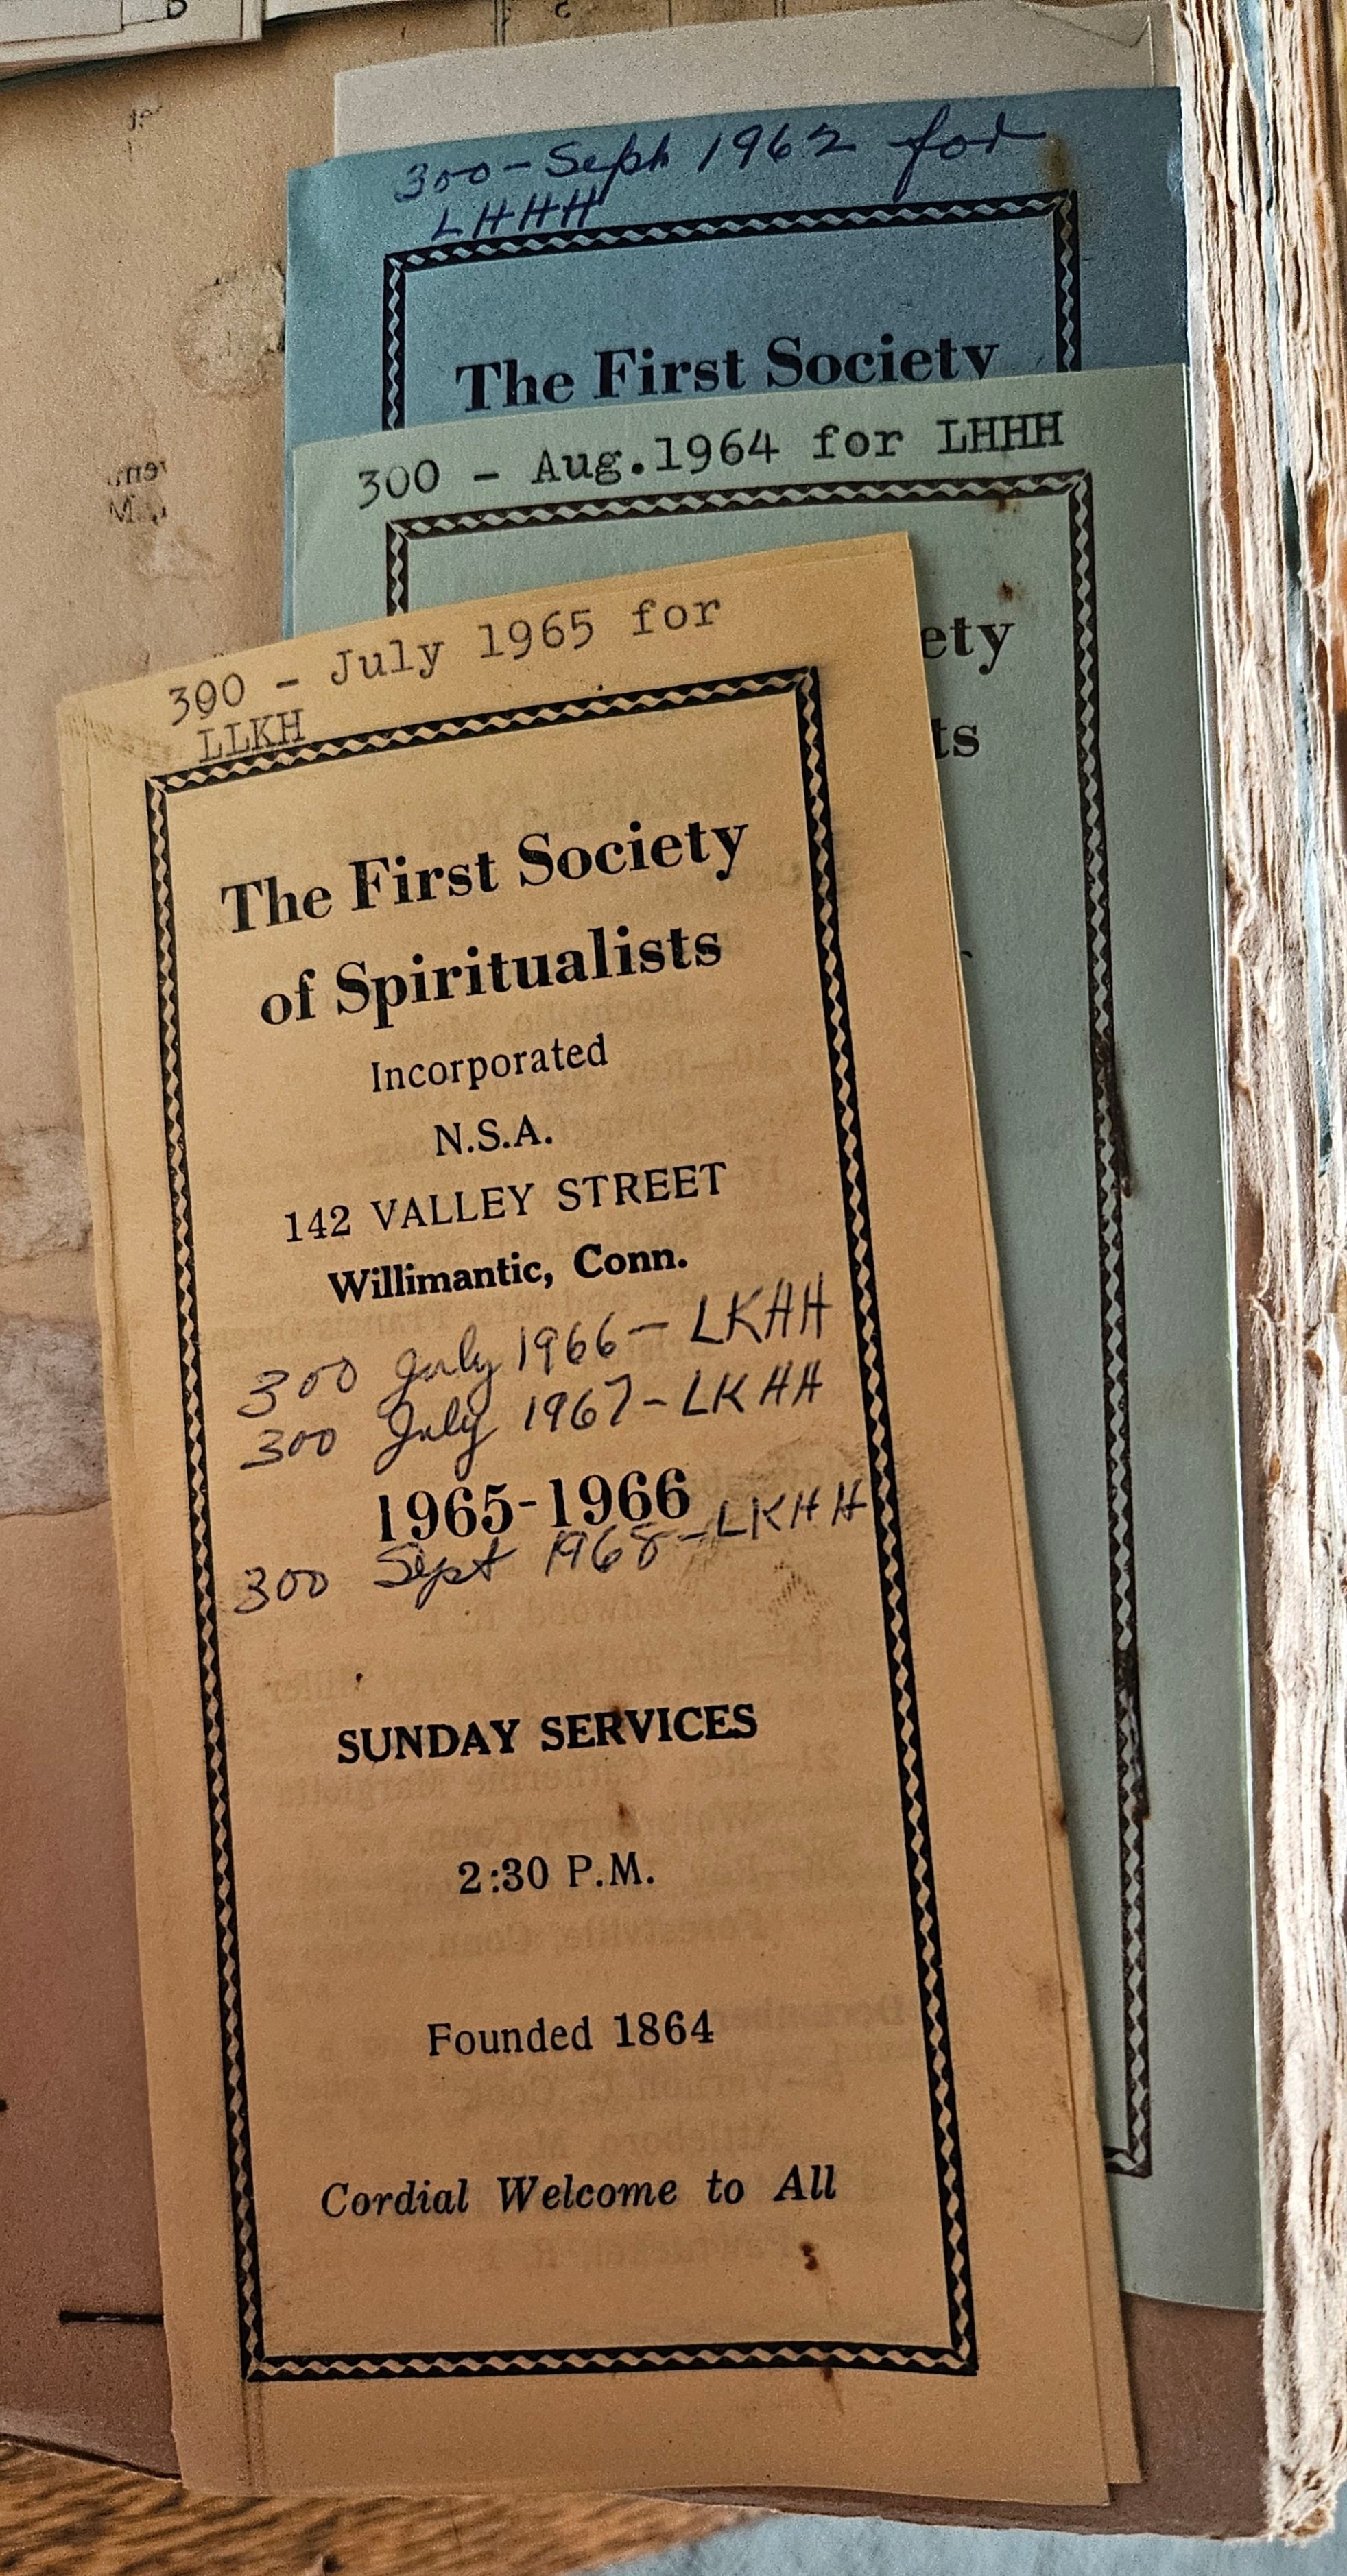 300 - Sept 1962 for
LHHH
The First Society
300 - Aug.1964 for LHHH
ety
ts
300 - July 1965 for
LLKH
The First Society
of Spiritualists
Incorporated
N.S.A.
142 VALLEY STREET
Willimantic, Conn.
300 July 1966 - LKHH
300 July 1967 - LKHH
1965-1966
300 Sept 1968 - LKHH
SUNDAY SERVICES
2:30 P.M.
Founded 1864
Cordial Welcome to All